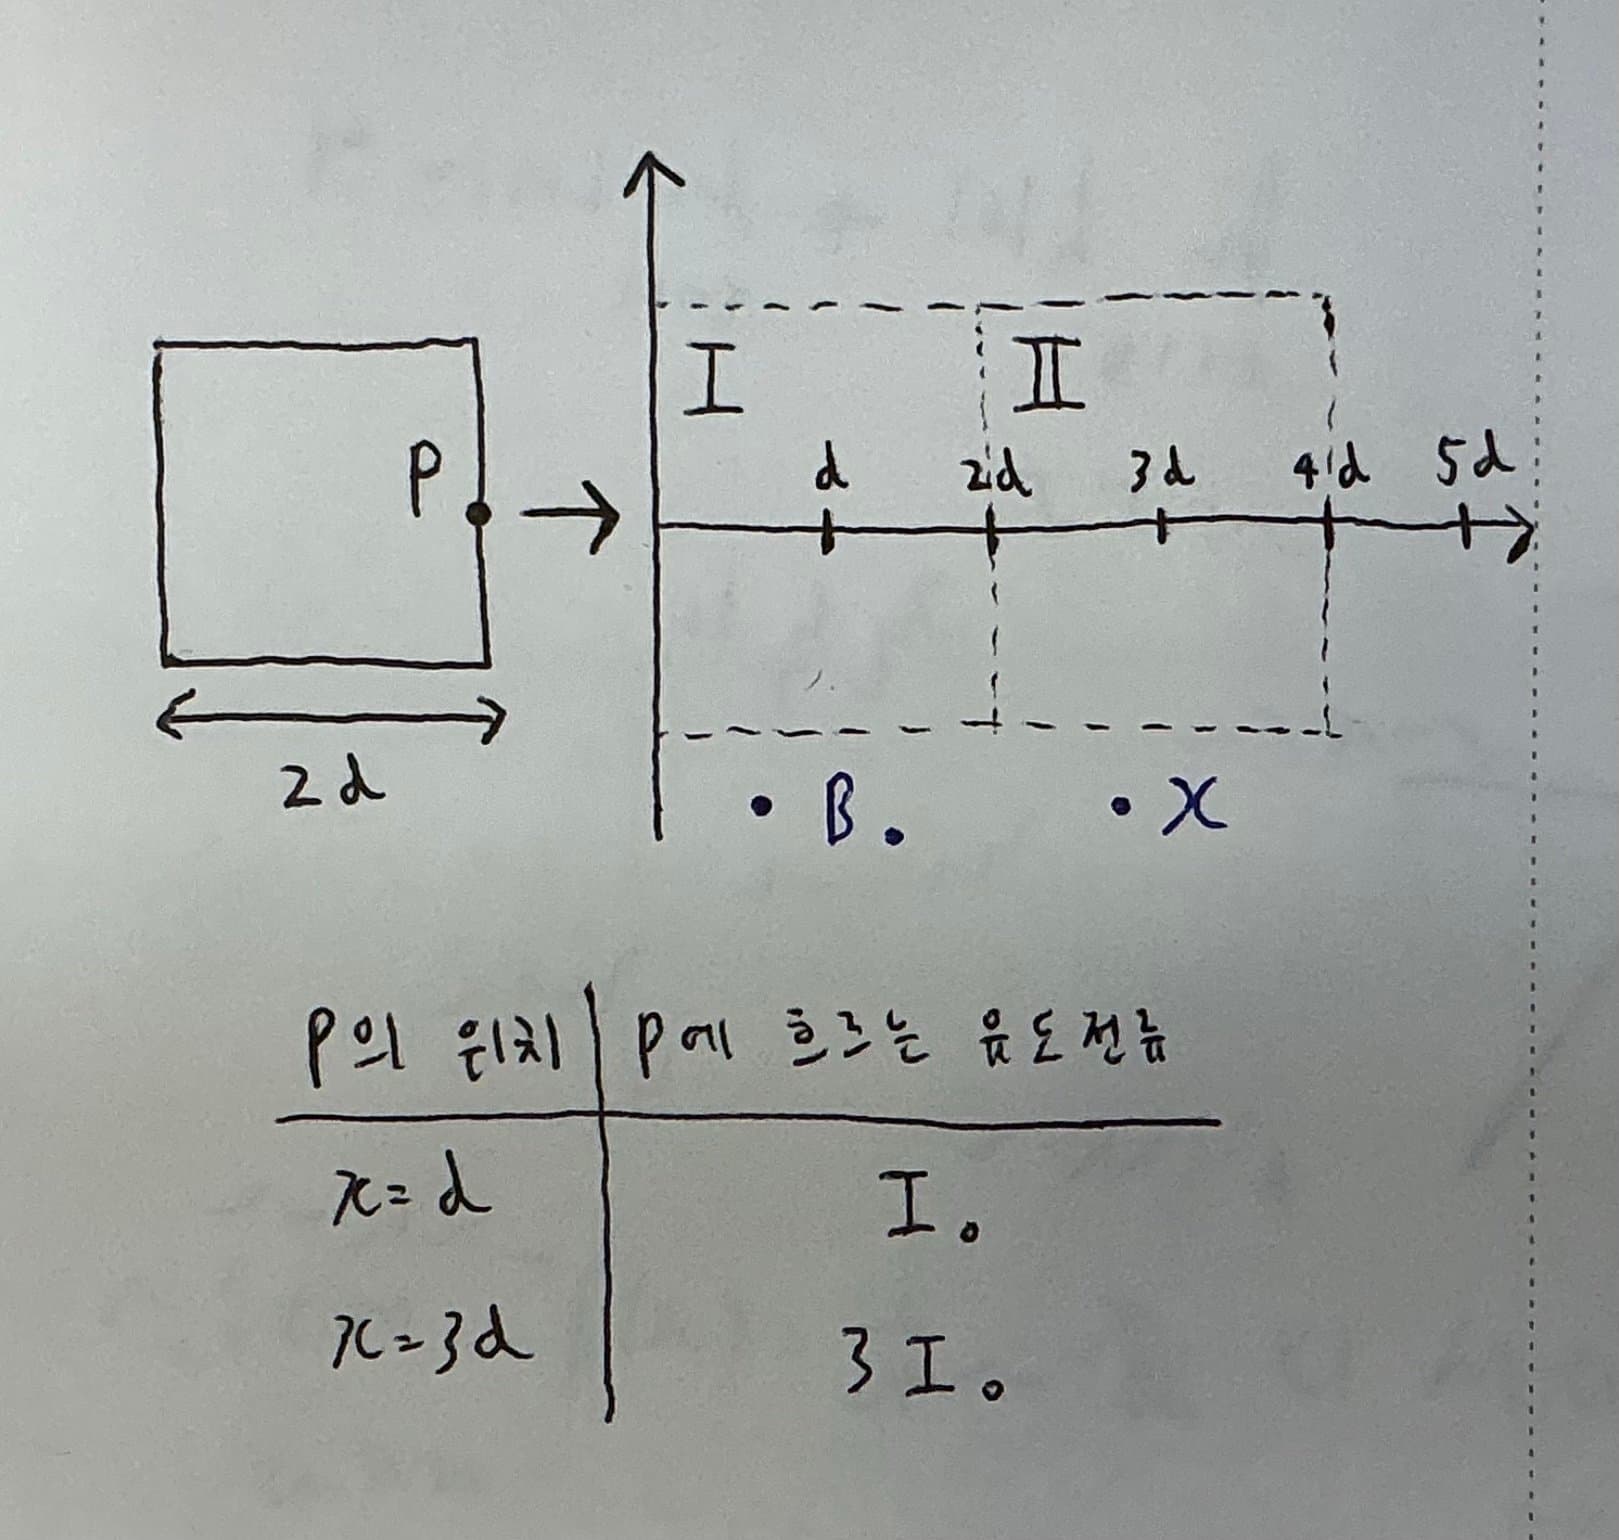 I II
P
d 2d 3d 4d 5d
2d
• B. • X
P의 위치 P에 흐르는 유도전류
x=d I₀
x=3d 3I₀